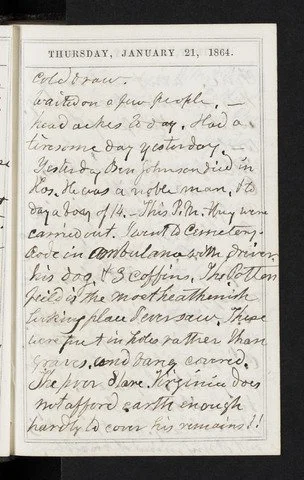 THURSDAY, JANUARY 21, 1864.
Cold & raw.
Waited on a few people, —
head aches to day. Had a
tiresome day yesterday. —
Yesterday Ben Johnson died in
Hos. He was a noble man. To
day a boy of 14. — This P.M. they were
carried out. I went to Cemetery.
Rode in ambulance with driver
his dog, & 3 coffins. The Potters
feild is the most heathenish
looking place I ever saw. These
were put in holes rather than
graves, and barely covered.
The poor slave. Virginia does
not afford earth enough
hardly to cover his remains!!